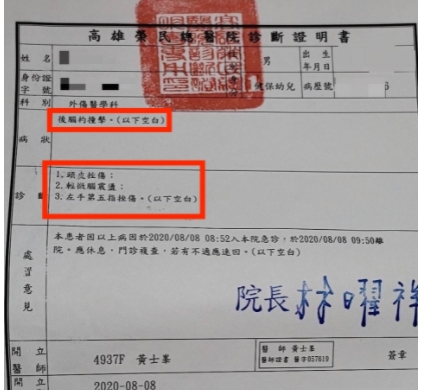 高雄榮民總醫院診斷證明書
姓名 男 出生年月日
身份證字號 健保幼兒 病歷號
科別 外傷醫學科
病狀 後腦杓撞擊。(以下空白)
診斷 1.頭皮挫傷；
2.輕微腦震盪；
3.左手第五指挫傷。(以下空白)
處置意見 本患者因以上病因於2020/08/08 08:52入本院急診，於2020/08/08 09:50離
院。應休息，門診複查，若有不適應速回。(以下空白)
院長 林曜祥
開立醫師 4937F 黃士峯 醫師 黃士峯 簽章
醫師證書 醫字057619
開立 2020-08-08